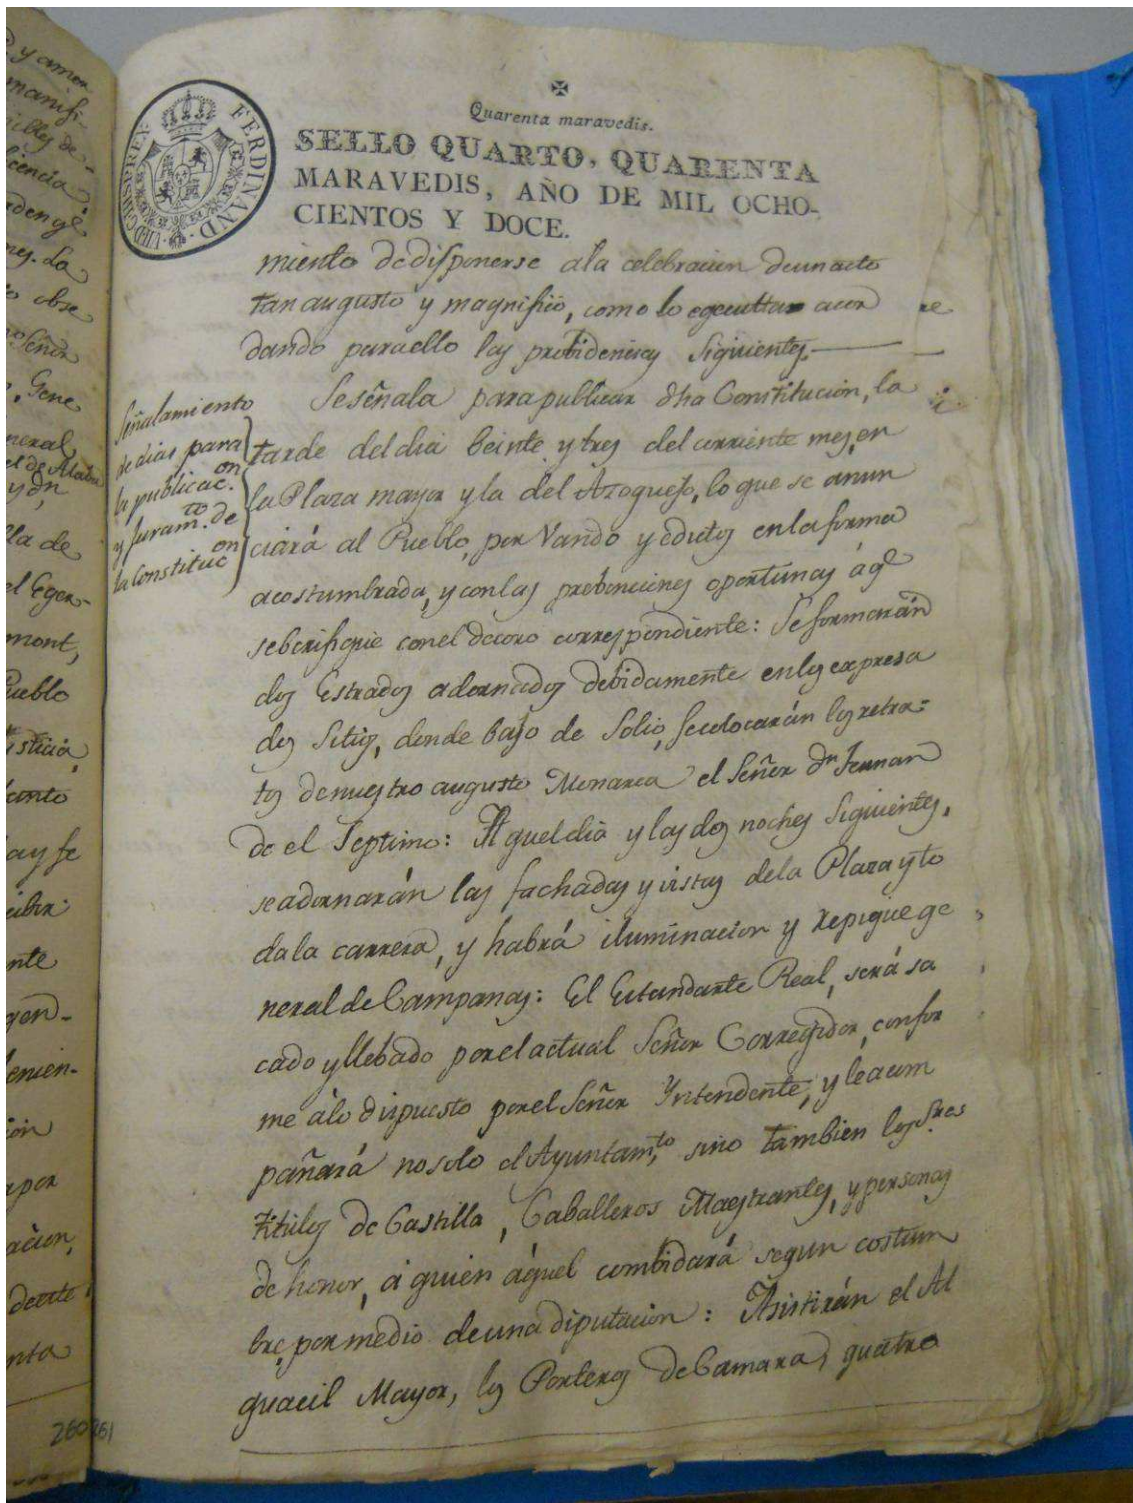 FERDINAND. VII D. G. HISP. REX.
Quarenta maravedis.
SELLO QUARTO, QUARENTA
MARAVEDIS, AÑO DE MIL OCHO-
CIENTOS Y DOCE.
miento de disponerse ala celebracion deunacto
tan augusto y magnifico, como lo egecutta acor
dando paraello las probidencias siguientes.
Señalamiento
de dias para
la publicac.on
y juram.to de
la Constituc.on
Seseñala parapublicar dha Constitucion, la
tarde deldia beinte ytres del corriente mes, en
la Plaza mayor yla del Azoguejo, lo que se anun
ciará al Pueblo, por Vando y edictos enlaforma
acostumbrada, y conlas prebenciones oportunas á qe
seberifique conel decoro correspondiente: Seformarán
dos Estrados adornados debidamente enlos expresa
dos sitios, donde bajo de Solio, secolocarán los retra=
tos denuestro augusto Monarca el Señor dn Fernan
do el Septimo: Aqueldia y las dos noches siguientes,
seadornarán las fachadas y vistas dela Plaza y to
dala carrera, y habrá iluminacion y repique ge
neral de Campanas: El Estandarte Real, será sa
cado yllebado porelactual Señor Corregidor, confor
me álo dispuesto porel Señor Yntendente, y leacom
pañará nosolo el Ayuntam.to sino tambien los S.res
titulos de Castilla, Caballeros Maestrantes, y personas
de honor, á quien áquel combidará segun costum
bre, pormedio deuna diputacion: Asistirán el Al
guacil Mayor, los Porteros de Camara, quatro
260
261